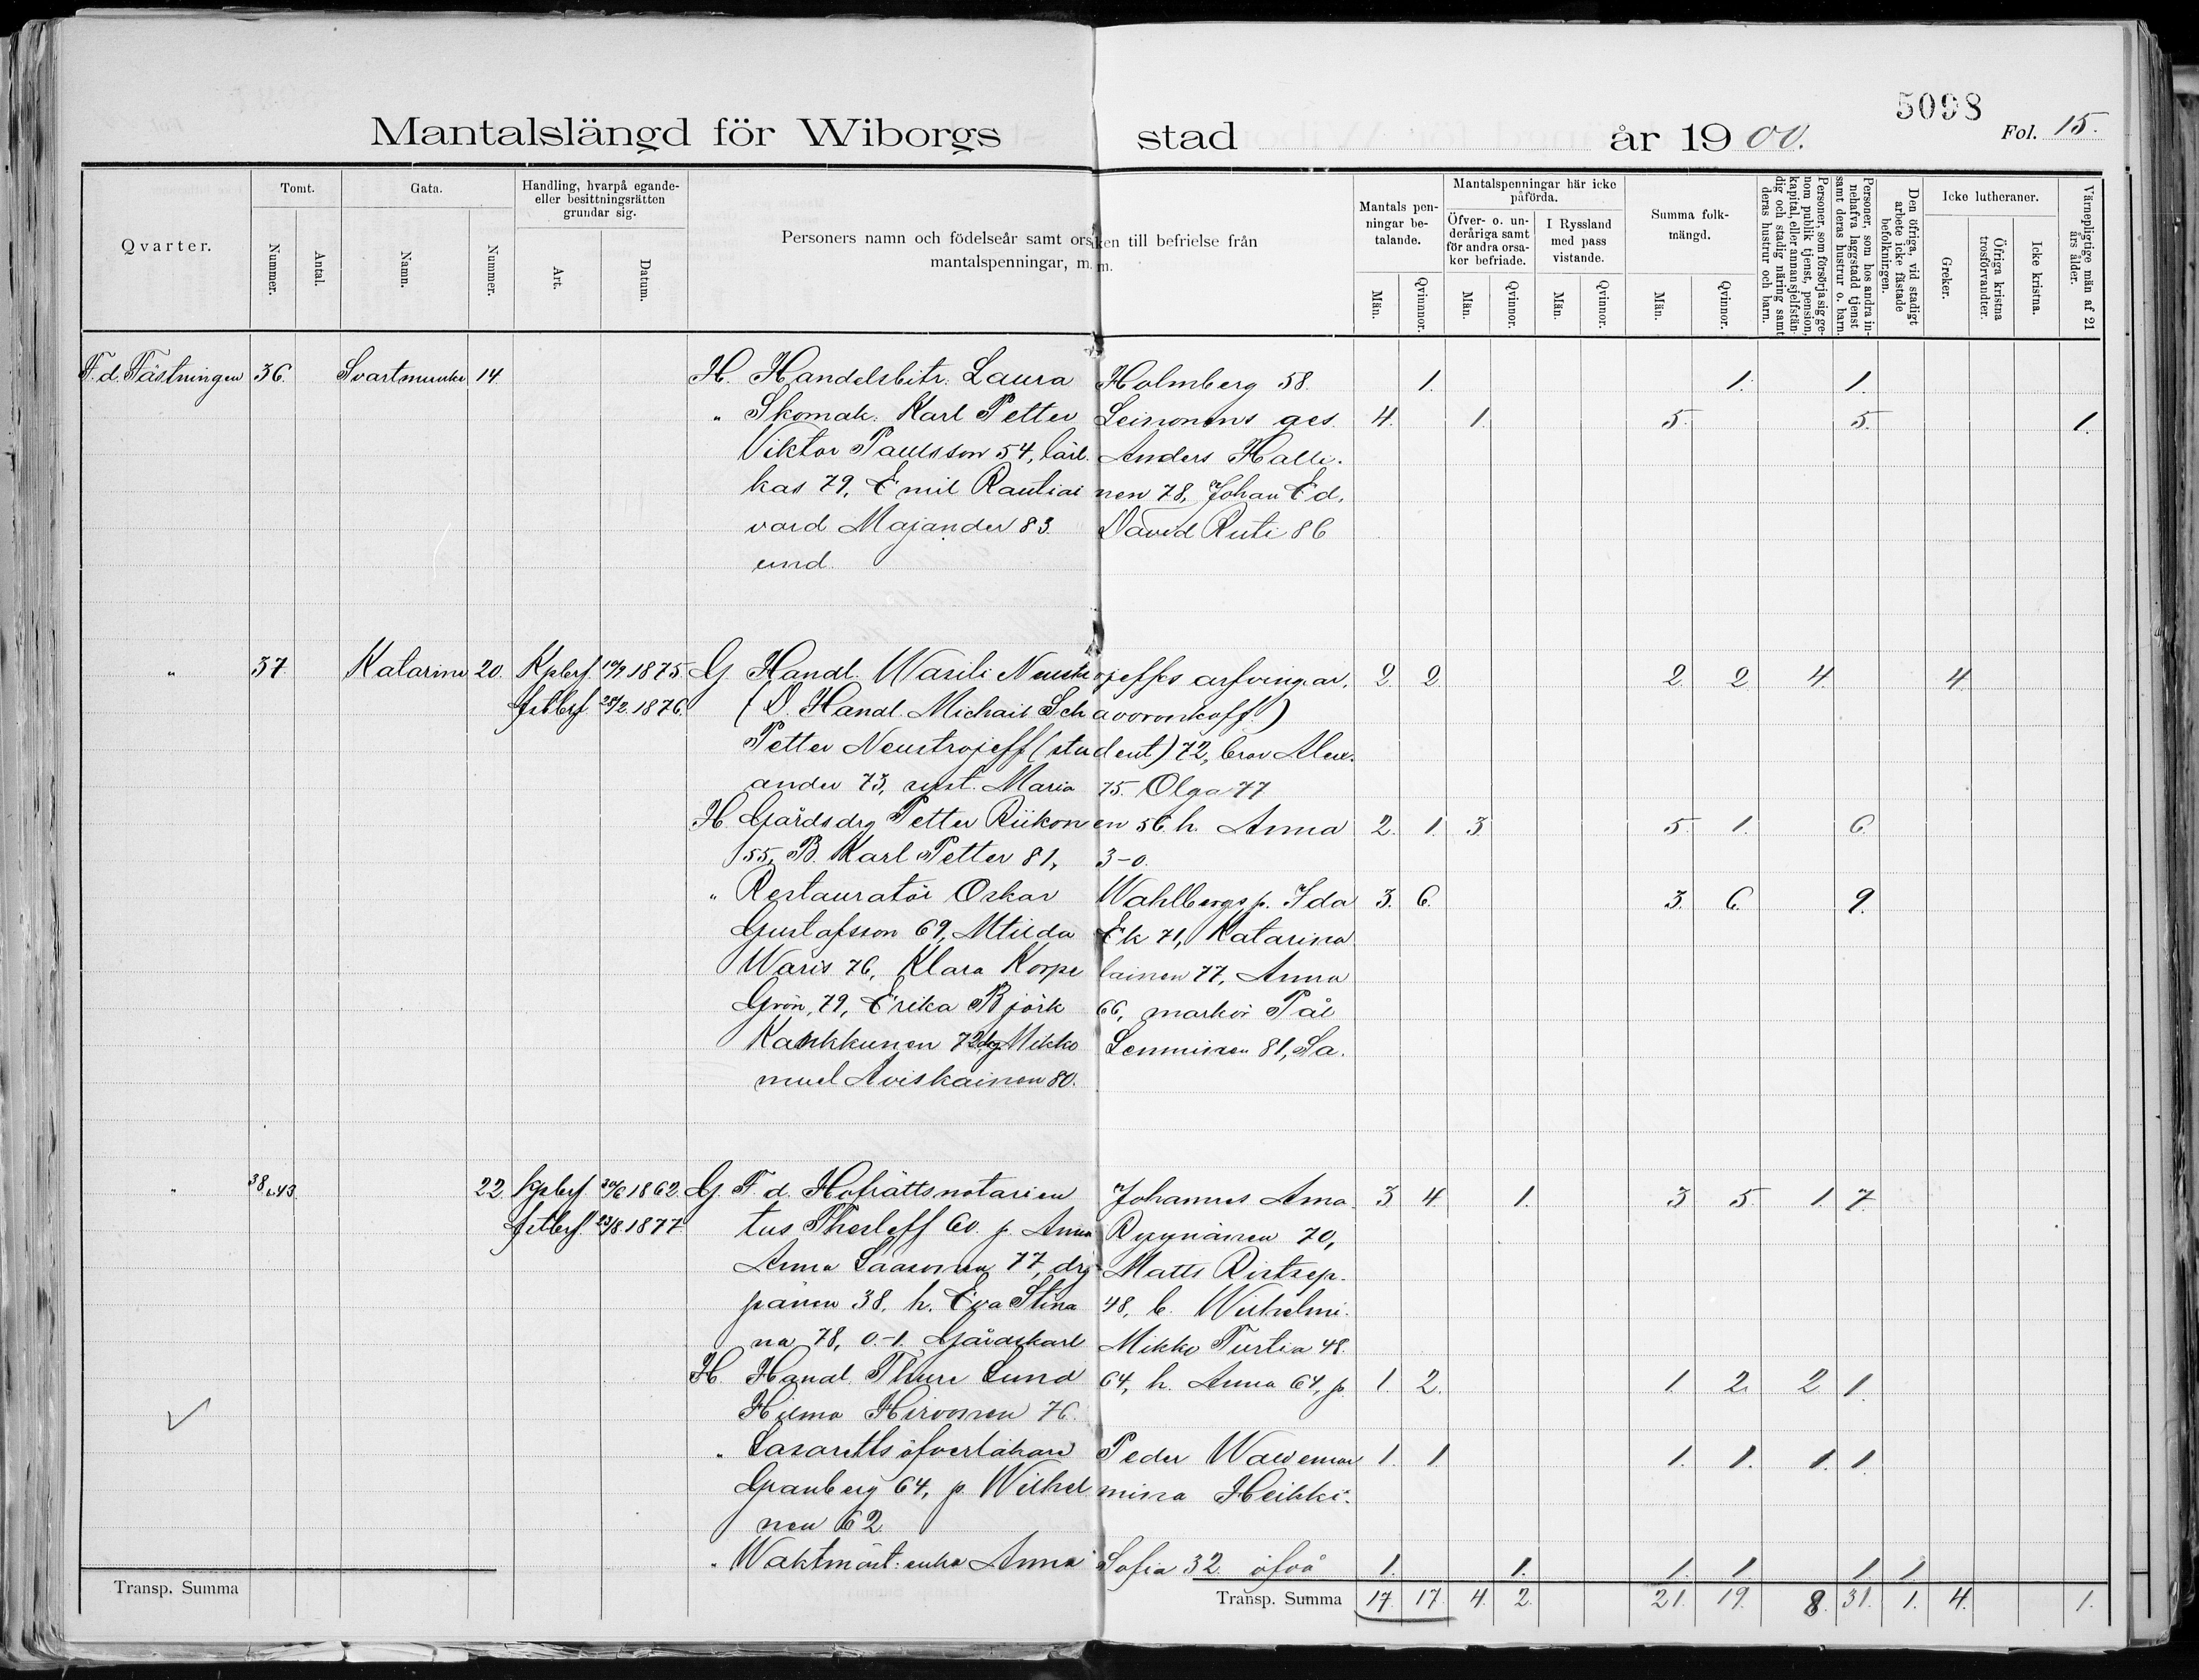 5098
Mantalslängd för Wiborgs stad år 1900. Fol. 15.
Qvarter.
Tomt.
Nummer.
Antal.
Gata.
Namn.
Nummer.
Handling, hvarpå egande-
eller besittningsrätten
grundar sig.
Art.
Datum.
Personers namn och födelseår samt orsaken till befrielse från
mantalspenningar, m. m.
Mantals pen-
ningar be-
talande.
Män.
Qvinnor.
Mantalspenningar här icke
påförda.
Öfver- o. un-
deråriga samt
för andra orsa-
ker befriade.
Män.
Qvinnor.
I Ryssland
med pass
vistande.
Män.
Qvinnor.
Summa folk-
mängd.
Män.
Qvinnor.
Personer, som försörja sig ge-
nom publik tjenst, pension,
kapital, eller annan sjelfstän-
dig och stadig näring samt
deras hustrur och barn.
Personer, som hos andra in-
nehafva laggstadd tjenst
samt deras hustrur o. barn.
Den öfriga, vid stadigt
arbete icke fästade
befolkningen.
Icke lutheraner.
Greker.
Öfriga kristna
trosförvandter.
Icke kristna.
Värnepligtige män af 21
års ålder.
F. d. Fästningen 36. Svartmunke 14. H. Handelsbitr. Laura Holmberg 58. 1. 1. 1.
" Skomak. Karl Petter Leinonens ges. 4. 1. 5. 5. 1.
Viktor Paulsson 54, lärl. Anders Halli-
kas 79, Emil Rautiai nen 78, Johan Ed.
vard Majander 83 David Ruti 86
und.
" 37. Katarine 20. Kpbrf. 19/9 1875. G Handl. Wasili Neustrojeffs arfvingar. 2. 2. 2. 2. 4. 4.
fstbrf. 28/2. 1876. (D. Handl. Michail Schavoronkoff.)
Petter Neustrojeff (student) 72, bror Alex-
ander 73, syst. Maria 75. Olga 77
H. Gårdsdrg Petter Riikonen 56 h. Anna 2. 1. 3 5. 1. 6.
55, B. Karl Petter 81, 3-0.
" Restauratör Oskar Wahlbergs p. Ida 3. 6. 3. 6. 9.
Gustafsson 69, Mtilda Ek 71, Katarina
Waris 76, Klara Korpe lainen 77, Anna
Grön, 79, Erika Björk 66, markör Pål
Kankkunen 72, drg Mikko Lemminen 81, Sa-
muel Aviskainen 80.
" 38 o. 43. 22. Kpbrf. 30/6 1862. G. F. d. Hofrättsnotarien Johannes Ama- 3 4 1. 3 5. 1. 7.
fstbrf. 23/8. 1877. tus Thesleff 60. p. Anna Ryynänen 70,
Anna Laasonen 77, drg Matts Ristsep-
pänen 38. h. Eva Stina 48, b. Wilhelmi-
na 78, 0-1. Gårdskarl Mikko Turtia 48.
H. Handl. Thure Lund 64, h. Anna 64, p. 1. 2. 1. 2. 2 1.
Hilma Hirvonen 76.
" Lasarettsöfverläkare Peder Waldemar 1. 1. 1. 1. 1. 1.
Granberg 64, p. Wilhel mina Heikki-
nen 62
" Waktmäst: enka Anna Sofia 32. öfvå 1. 1. 1. 1. 1. 1.
Transp. Summa Transp. Summa 17. 17. 4. 2. 21. 19. 8. 31. 1. 4. 1.